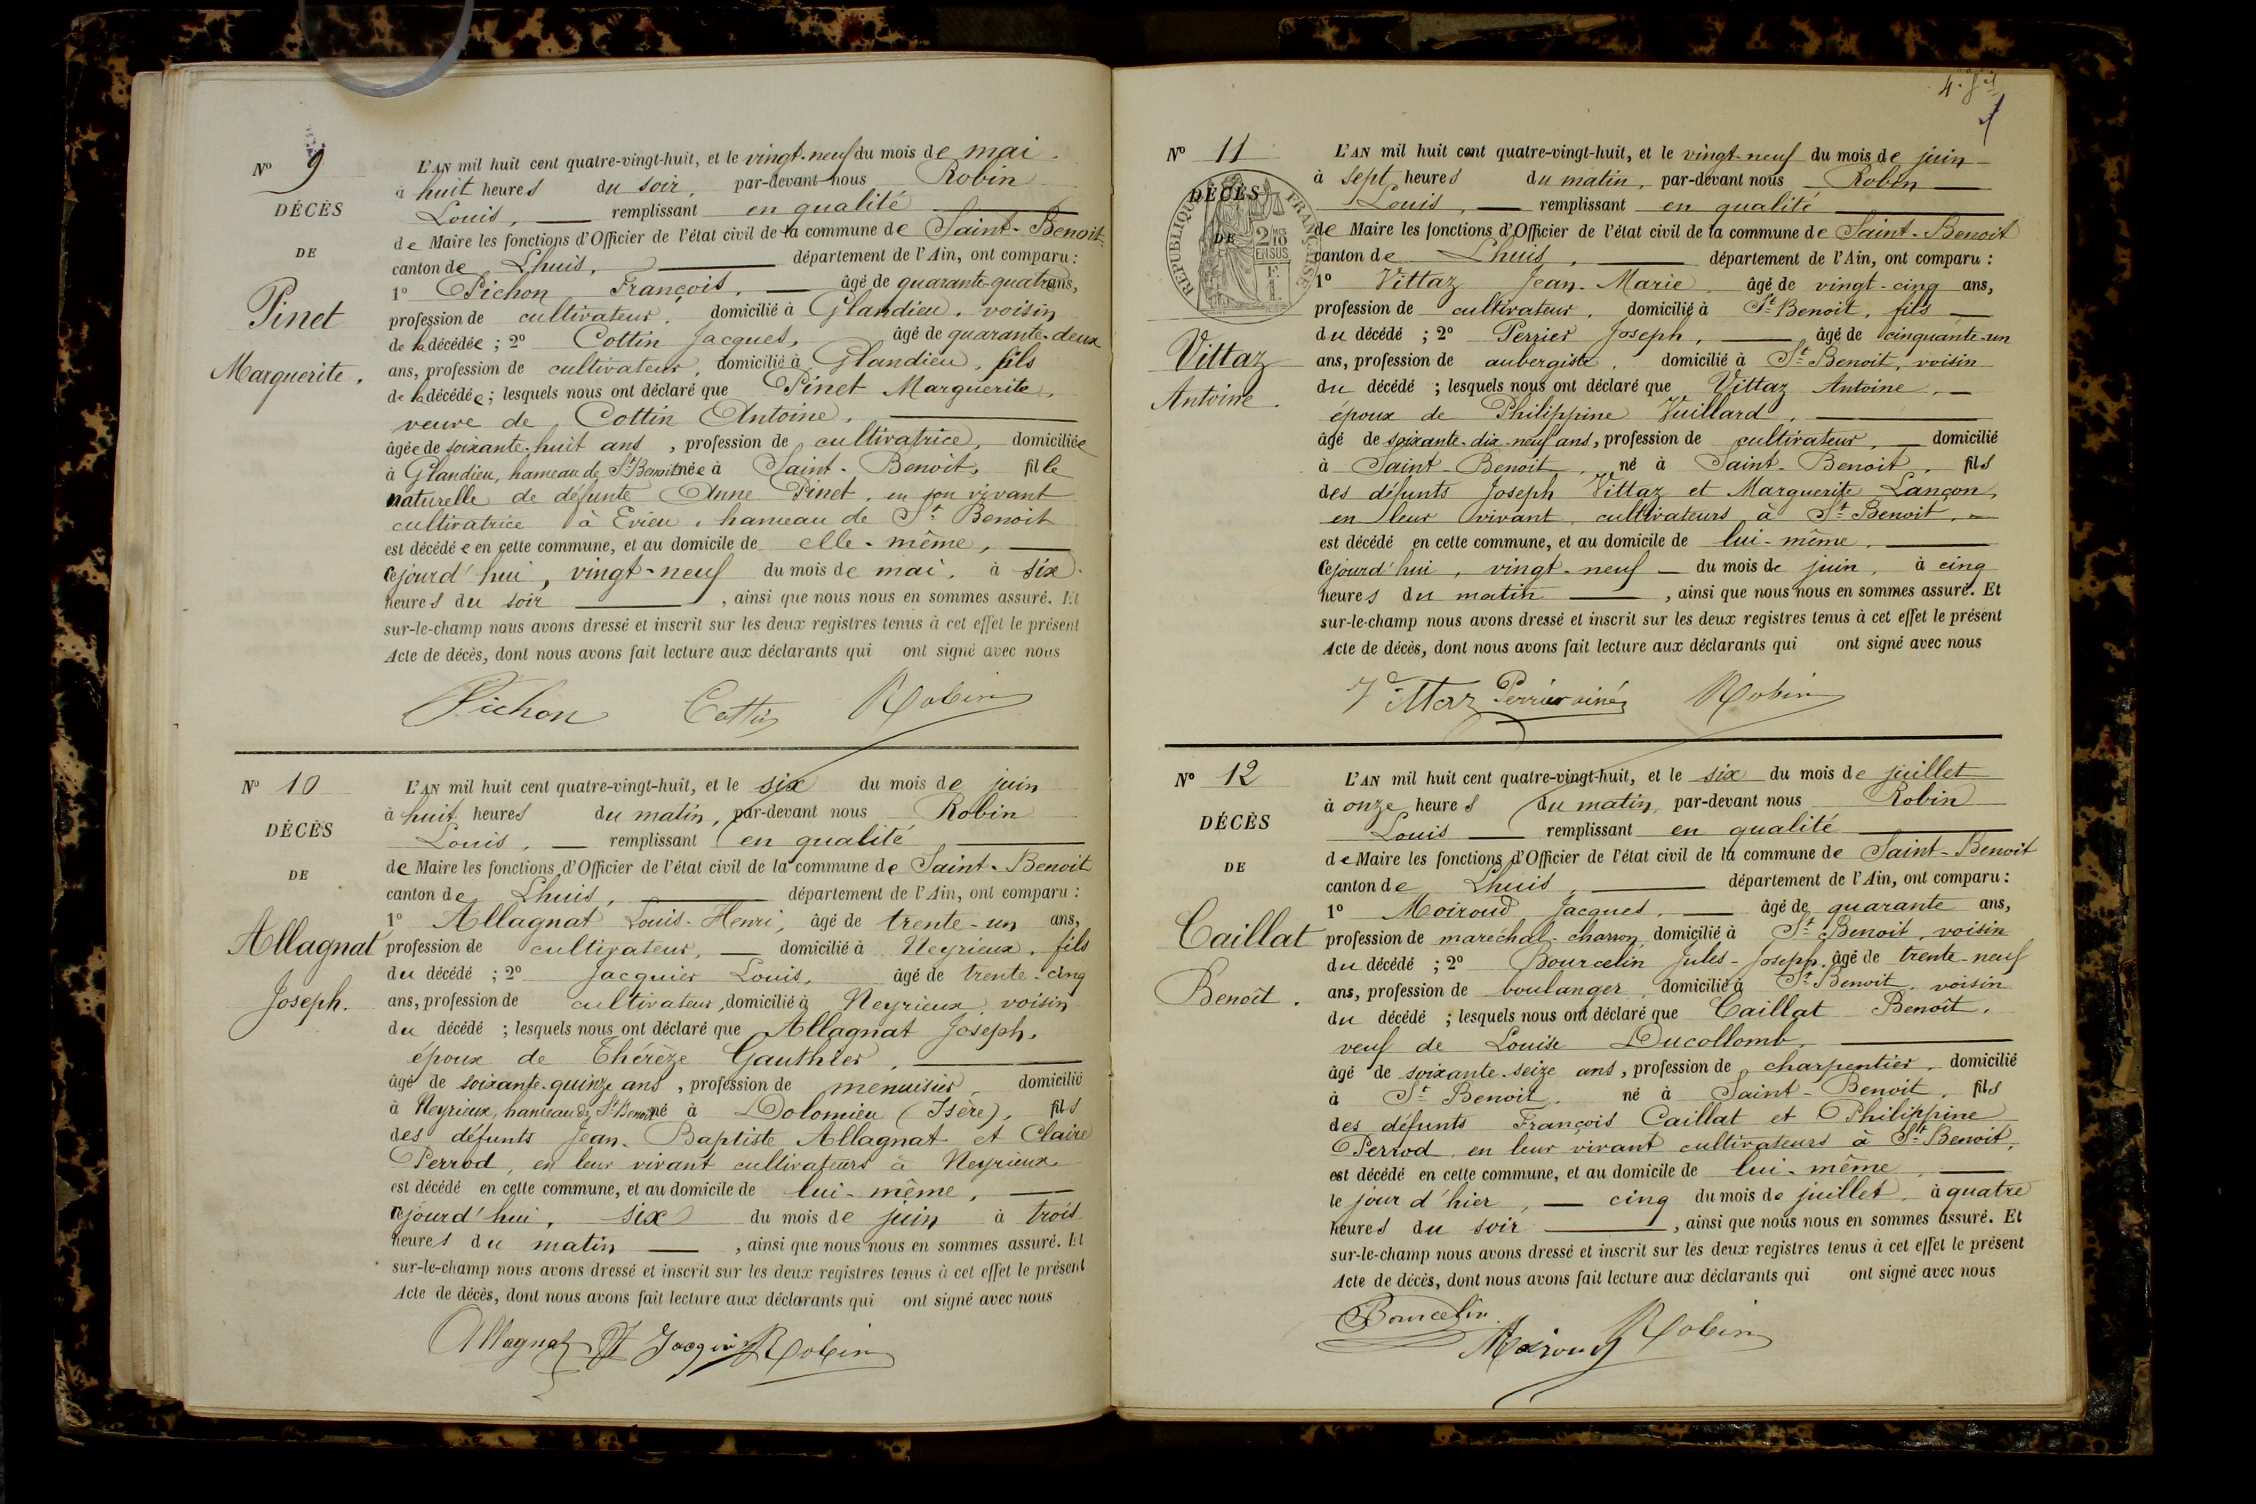 Nº 9
DÉCÈS
DE
Pinet
Marguerite.
L'AN mil huit cent quatre-vingt-huit, et le vingt-neuf du mois de mai.
à huit heures du soir, par-devant nous Robin
Louis, remplissant en qualité
de Maire les fonctions d'Officier de l'état civil de la commune de Saint-Benoit
canton de Lhuis, département de l'Ain, ont comparu :
1º Pichon François, âgé de quarante-quatre ans,
profession de cultivateur, domicilié à Glandieu, voisin
de la décédée ; 2º Cottin Jacques, âgé de quarante-deux
ans, profession de cultivateur, domicilié à Glandieu, fils
de la décédée ; lesquels nous ont déclaré que Pinet Marguerite,
veuve de Cottin Antoine,
âgée de soixante-huit ans, profession de cultivatrice, domiciliée
à Glandieu, hameau de St Benoit née à Saint-Benoit, fille
naturelle de défunte Anne Pinet, en son vivant
cultivatrice à Evieu, hameau de St Benoit
est décédée en cette commune, et au domicile de elle-même,
cejourd'hui, vingt-neuf du mois de mai, à six
heures du soir, ainsi que nous nous en sommes assuré. Et
sur-le-champ nous avons dressé et inscrit sur les deux registres tenus à cet effet le présent
Acte de décès, dont nous avons fait lecture aux déclarants qui ont signé avec nous
Pichon Cottin Robin
Nº 10
DÉCÈS
DE
Allagnat
Joseph.
L'AN mil huit cent quatre-vingt-huit, et le six du mois de juin
à huit heures du matin, par-devant nous Robin
Louis, remplissant en qualité
de Maire les fonctions d'Officier de l'état civil de la commune de Saint-Benoit
canton de Lhuis, département de l'Ain, ont comparu :
1º Allagnat Louis-Henri, âgé de trente-un ans,
profession de cultivateur, domicilié à Neyrieux, fils
du décédé ; 2º Jacquier Louis, âgé de trente-cinq
ans, profession de cultivateur, domicilié à Neyrieux, voisin
du décédé ; lesquels nous ont déclaré que Allagnat Joseph,
époux de Thérèze Gauthier,
âgé de soixante-quinze ans, profession de menuisier domicilié
à Neyrieux, hameau de St Benoit né à Dolomieu (Isère), fils
des défunts Jean-Baptiste Allagnat et Claire
Perrod, en leur vivant cultivateurs à Neyrieux
est décédé en cette commune, et au domicile de lui-même,
cejourd'hui, six du mois de juin à trois
heures du matin, ainsi que nous nous en sommes assuré. Et
sur-le-champ nous avons dressé et inscrit sur les deux registres tenus à cet effet le présent
Acte de décès, dont nous avons fait lecture aux déclarants qui ont signé avec nous
Allagnat Jacquier Robin
4e
Nº 11
DÉCÈS
DE
RÉPUBLIQUE FRANÇAISE
2/10 EN SUS
Vittaz
Antoine.
L'AN mil huit cent quatre-vingt-huit, et le vingt-neuf du mois de juin
à sept heures du matin, par-devant nous Robin
Louis, remplissant en qualité
de Maire les fonctions d'Officier de l'état civil de la commune de Saint-Benoit
canton de Lhuis, département de l'Ain, ont comparu :
1º Vittaz Jean-Marie âgé de vingt-cinq ans,
profession de cultivateur, domicilié à St Benoit, fils
du décédé ; 2º Perrier Joseph, âgé de cinquante-un
ans, profession de aubergiste, domicilié à St Benoit, voisin
du décédé ; lesquels nous ont déclaré que Vittaz Antoine,
époux de Philippine Vuillard,
âgé de soixante-dix-neuf ans, profession de cultivateur, domicilié
à Saint-Benoit, né à Saint-Benoit, fils
des défunts Joseph Vittaz et Marguerite Lançon,
en leur vivant cultivateurs à St Benoit,
est décédé en cette commune, et au domicile de lui-même,
cejourd'hui, vingt-neuf du mois de juin, à cinq
heures du matin, ainsi que nous nous en sommes assuré. Et
sur-le-champ nous avons dressé et inscrit sur les deux registres tenus à cet effet le présent
Acte de décès, dont nous avons fait lecture aux déclarants qui ont signé avec nous
Vittaz Perrier ainé Robin
Nº 12
DÉCÈS
DE
Caillat
Benoît.
L'AN mil huit cent quatre-vingt-huit, et le six du mois de juillet
à onze heures du matin, par-devant nous Robin
Louis remplissant en qualité
de Maire les fonctions d'Officier de l'état civil de la commune de Saint-Benoit
canton de Lhuis, département de l'Ain, ont comparu :
1º Moiroud Jacques, âgé de quarante ans,
profession de maréchal-charron, domicilié à St Benoit, voisin
du décédé ; 2º Bourcelin Jules-Joseph, âgé de trente-neuf
ans, profession de boulanger, domicilié à St Benoit, voisin
du décédé ; lesquels nous ont déclaré que Caillat Benoît,
veuf de Louise Ducollomb,
âgé de soixante-seize ans, profession de charpentier, domicilié
à St Benoit, né à Saint-Benoit, fils
des défunts François Caillat et Philippine
Perrod en leur vivant cultivateurs à St Benoit,
est décédé en cette commune, et au domicile de lui-même,
le jour d'hier, cinq du mois de juillet, à quatre
heures du soir, ainsi que nous nous en sommes assuré. Et
sur-le-champ nous avons dressé et inscrit sur les deux registres tenus à cet effet le présent
Acte de décès, dont nous avons fait lecture aux déclarants qui ont signé avec nous
Bourcelin
Moiroud Robin